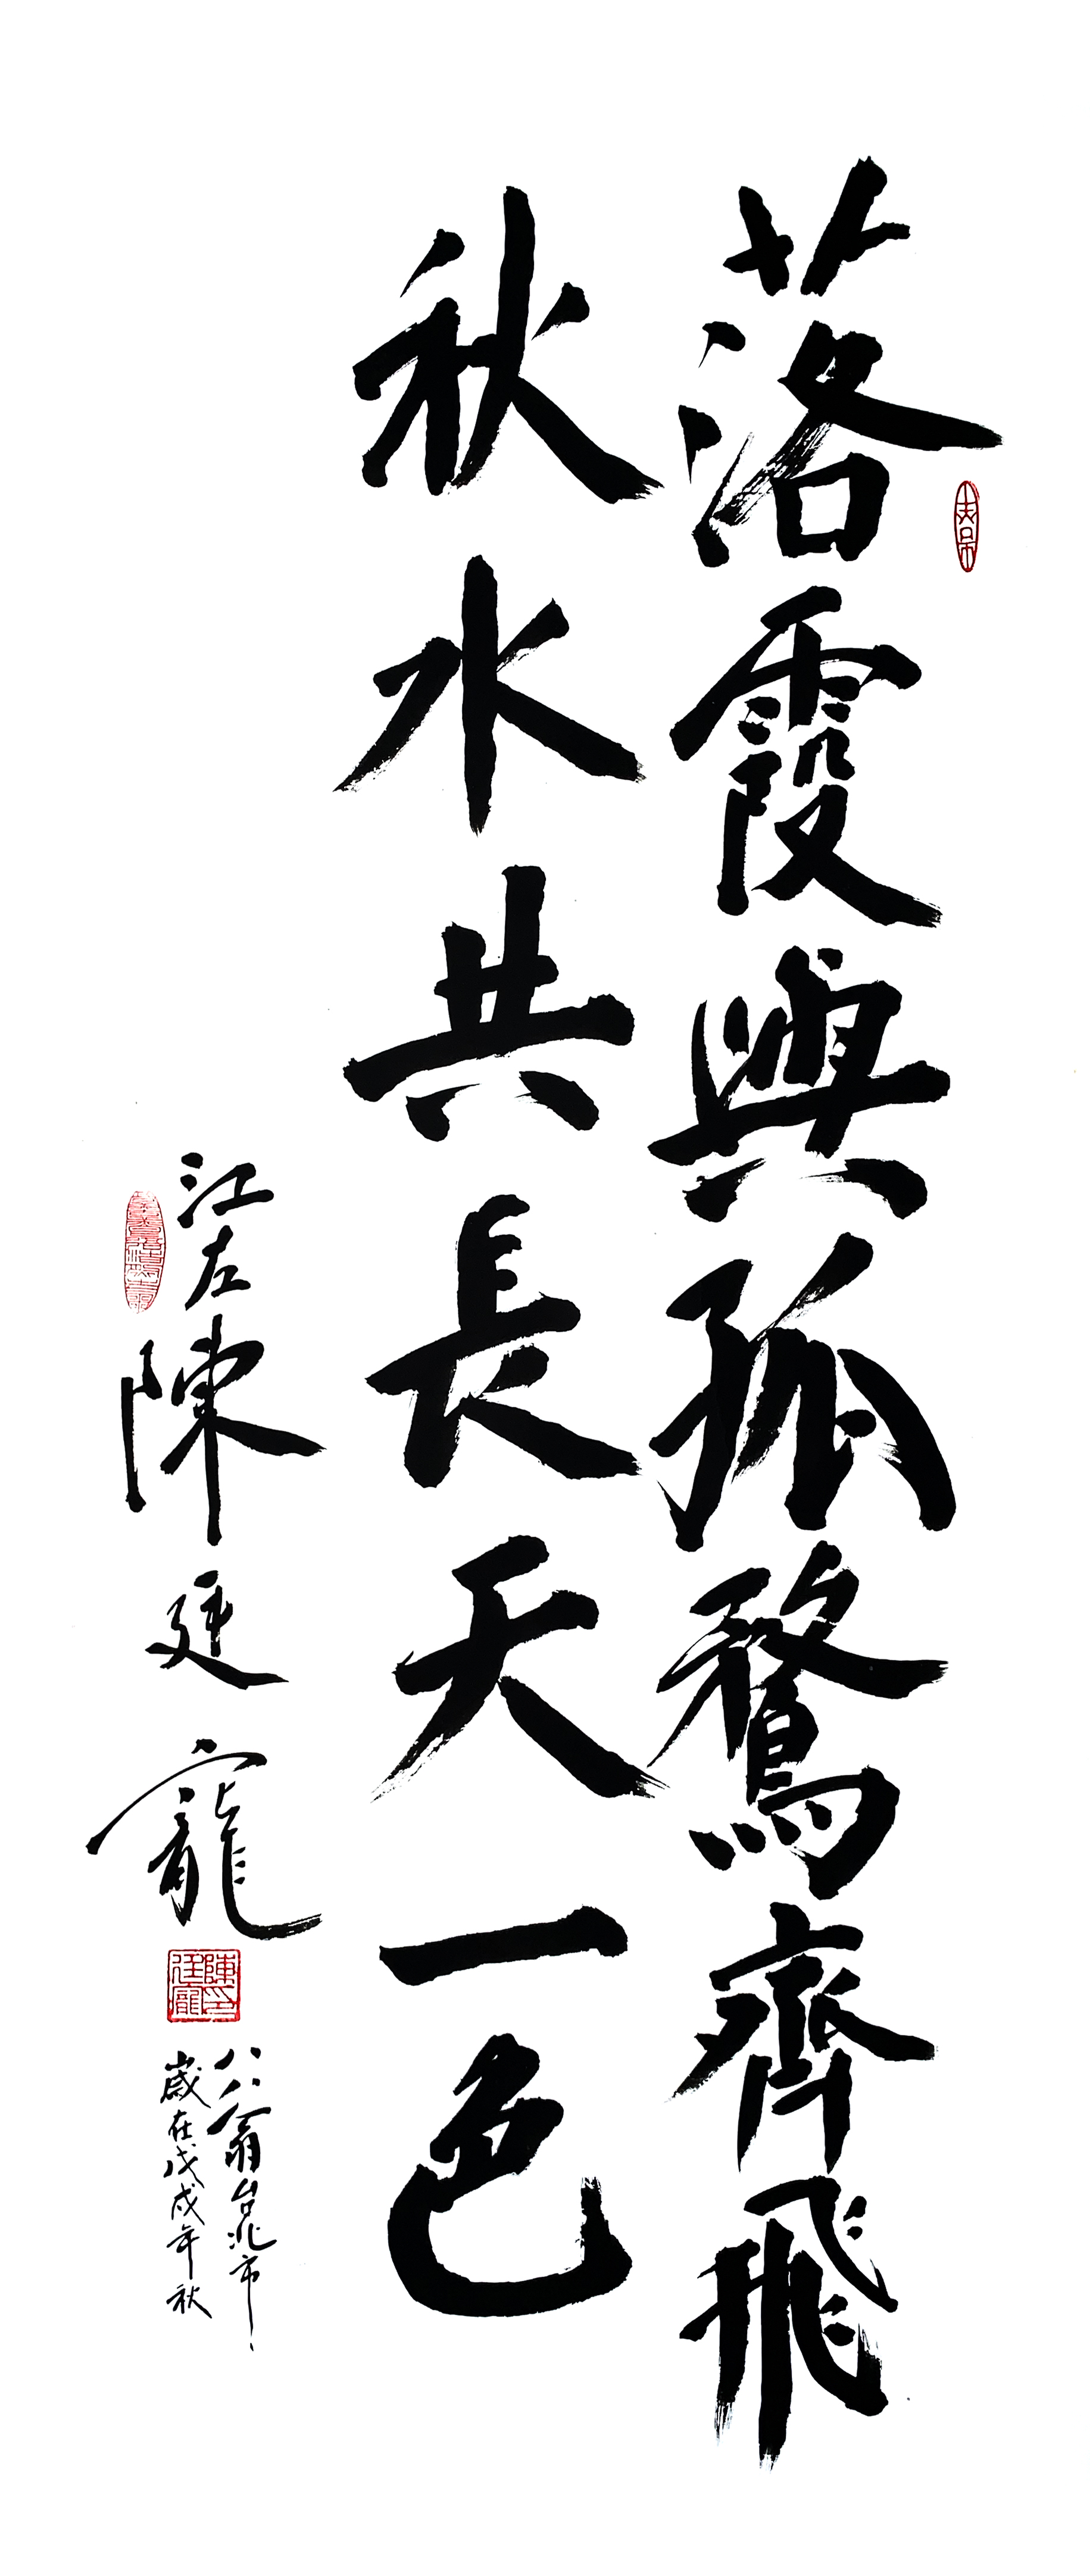 落霞與孤鶩齊飛
秋水共長天一色
江左陳廷寵
八八翁台北市
歲在戊戌年秋
陳廷寵印